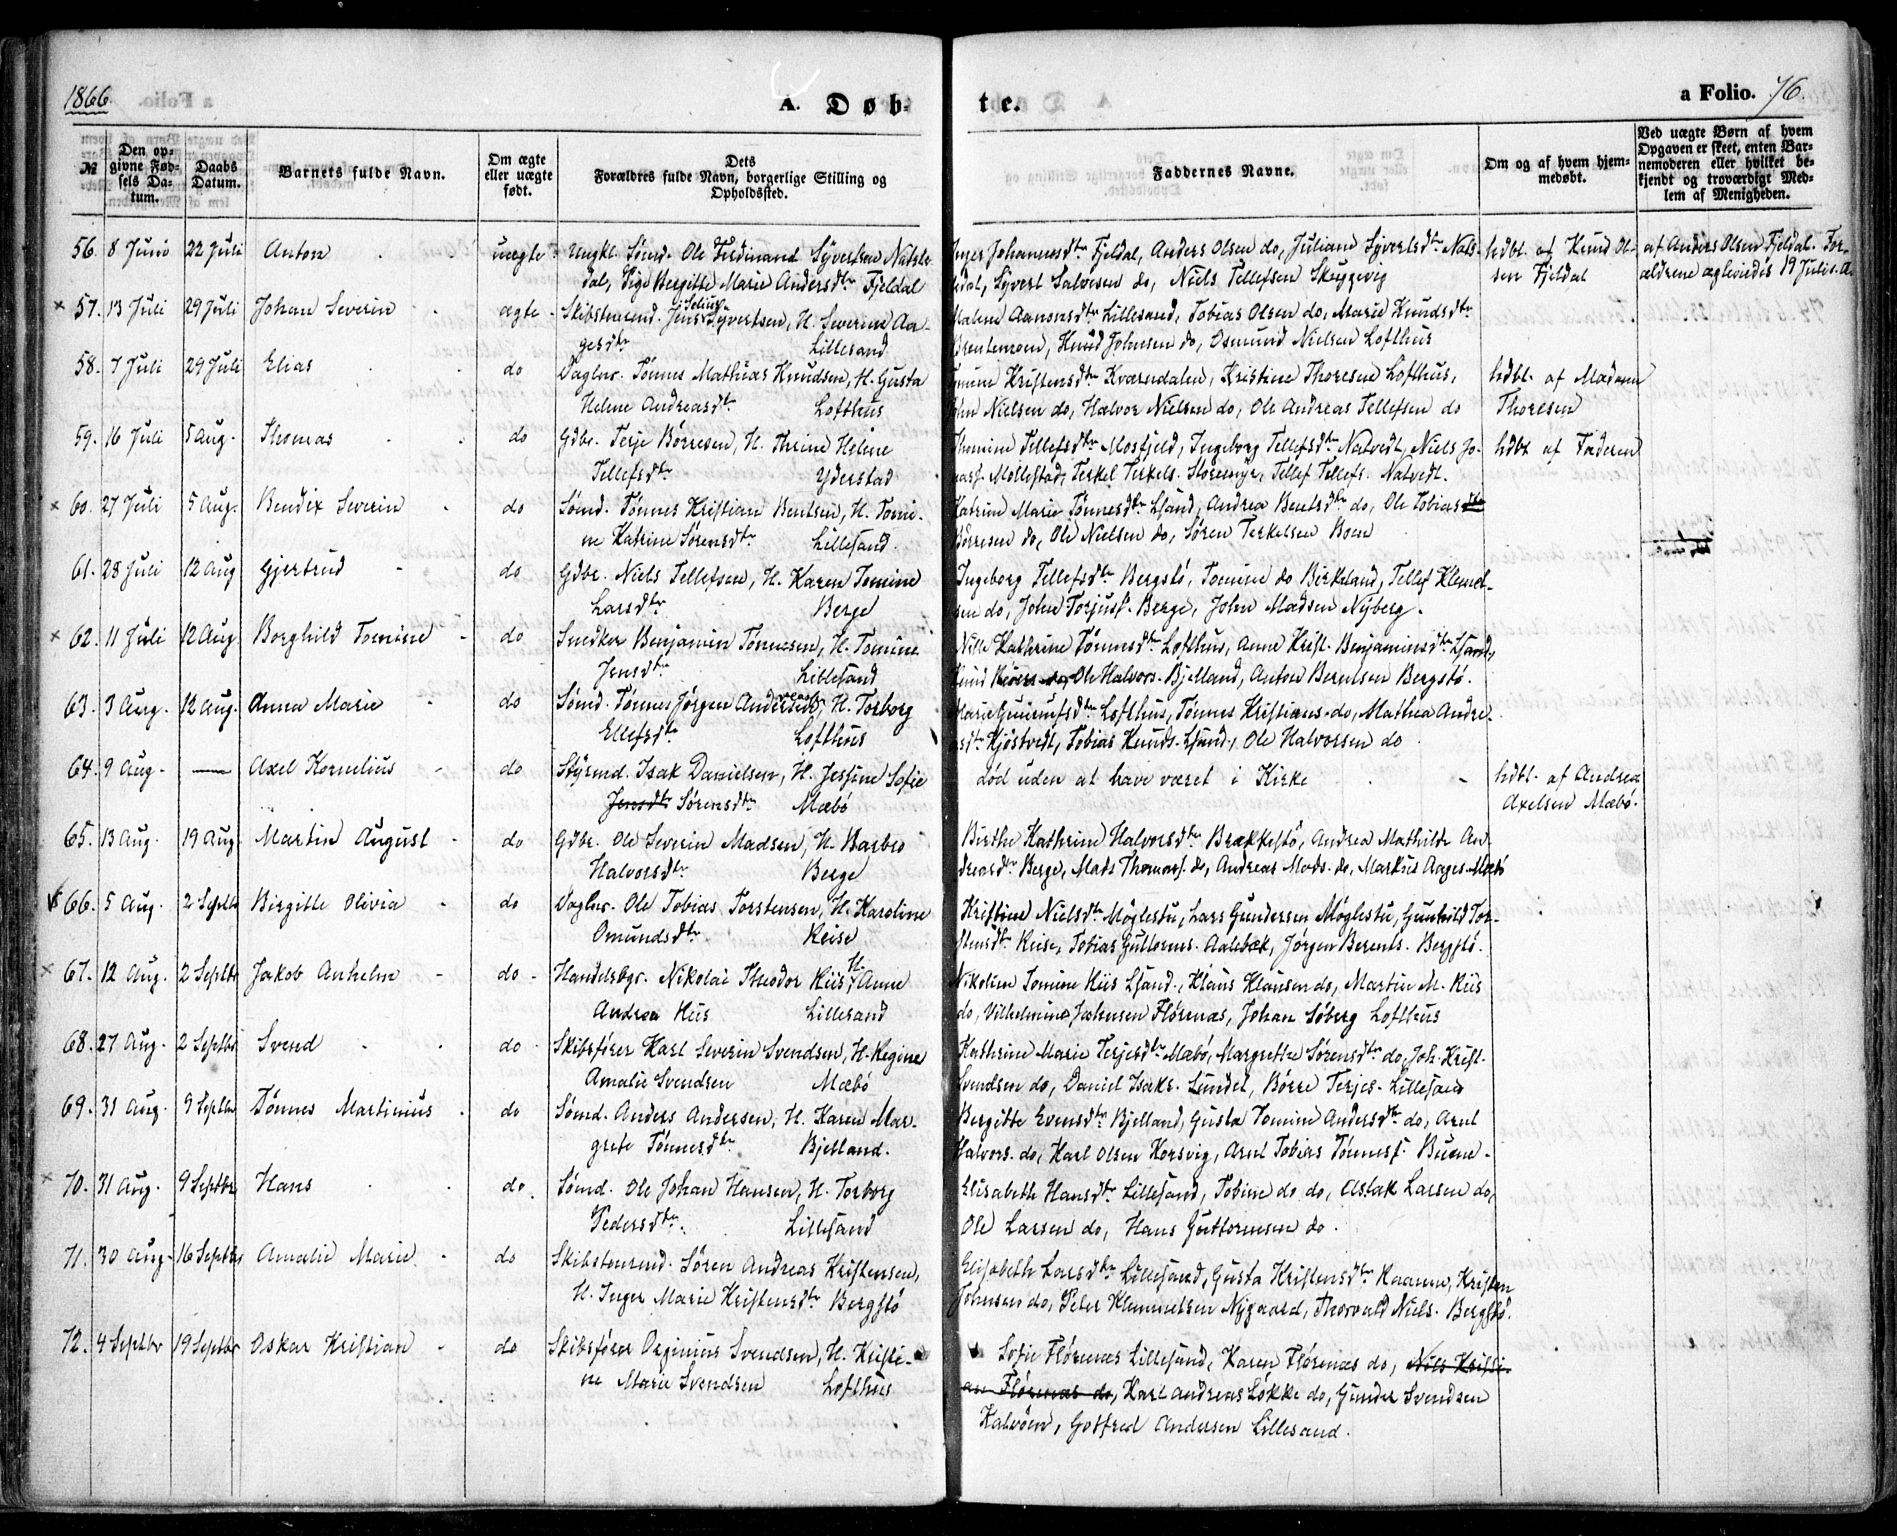 1866.
A. Døb-
te.
a Folio. 76.
№
Den op-
givne Fød-
sels Da-
tum.
Daabs
Datum.
Barnets fulde Navn.
Om ægte
eller uægte
født.
Dets
Forældres fulde Navn, borgerlige Stilling og
Opholdssted.
Faddernes Navne.
Om og af hvem hjem-
medøbt.
Ved uægte Børn af hvem
Opgaven er skeet, enten Bar-
nemoderen eller hvilket be-
kjendt og troværdigt Med-
lem af Menigheden.
56. 8 Juni 22 Juli Anton uægte Ungkl. Sømd. Ole Ferdinand Syvertsen
dal, Pige Bergitte Marie Andersdtr Fjeldal
Inger Johannesdtr Fjeldal, Anders Olsen do, Juliane Syvertsdtr
dal, Syvert Salvesen do, Niels Tellefsen Skyggevig
hdbt. af Knud Ol-
sen Fjeldal
af Anders Olsen Fjeldal. For-
ældrene ægteviedes 19 Juli
57. 13 Juli 29 Juli Johan Severin ægte Skibstømmd. Jens Syvertsen, H. Severine Aa-
gesdtr Lillesand
Malene Aanonsdtr Lillesand, Tobias Olsen do, Marie Knudsdtr
Brentemoen, Knud Johnsen do, Osmund Nielsen Lofthus
58. 7 Juli 29 Juli Elias do Daglnr. Tønnes Mathias Knudsen, H. Gusta
Helene Andreasdtr Lofthus
Kristensdtr Kværndalen, Kristine Thoresen Lofthus,
John Nielsen do, Halvor Nielsen do, Ole Andreas Tellefsen do
hdbt. af Madam
Thoresen
59. 16 Juli 5 Aug. Thomas do Gdbr. Terje Børresen, H. Thrine Helene
Tellefsdtr Yderstad
Thomine Tellefsdtr Mosfjeld, Ingeborg Tellefsdtr Natvedt, Niels Jo-
nass. Møllestad, Terkel Terkels. Storemyr, Tellef Tellefs. Natvedt.
hdbt af Faderen
60. 27 Juli 5 Aug. Bendix Severin do Sømd. Tønnes Kristian Bentsen, H. Tomi-
ne Katrine Sørensdtr Lillesand
Katrine Marie Tønnesdtr Lsand, Andrea Bentsdtr do, Ole Tobias
Børresen do, Ole Nielsen do, Søren Terkelsen Boen
61. 28 Juli 12 Aug Gjertrud do Gdbr. Niels Tellefsen, H. Karen Tomine
Larsdtr Berge
Ingeborg Tellefsdtr Bergstø, Tomine do Birkeland, Tellef Klemet-
sen do, John Torjuss. Berge, John Madsen Nyberg.
62. 11 Juli 12 Aug Borghild Tomine do Snedker Benjamin Tønnesen, H. Tomine
Jensdtr Lillesand
Nille Kathrine Tønnesdtr Lofthus, Anne Krist. Benjaminsdtr Lsand,
Knud do, Ole Halvors. Bjelland, Anton Berntsen Bergstø.
63. 3 Aug. 12 Aug. Anna Marie do Sømd. Tønnes Jørgen Andreasen, H. Torborg
Ellefsdtr Lofthus
Marie Lofthus, Tønnes Kristians. do, Mathea Andre-
asdtr Kjøstvedt, Tobias Knuds. Lsand, Ole Halvorsen do
64. 9 Aug. — Axel Kornelius do Styrmd. Isak Danielsen, H. Jessine Sofie
Jensdtr Sørensdtr Mæbø
død uden at have været i Kirke
hdbt. af Andrea
Axelsen Mæbø.
65. 13 Aug. 19 Aug. Martin August do Gdbr. Ole Severin Madsen, H. Barbro
Halvorsdtr Berge
Birthe Kathrine Halvorsdtr Brækkestø, Andrea Mathilde An-
dreasdtr Berge, Mads Thomass. do, Andreas Mads. do, Markus Aages. Mæbø
66. 5 Aug. 2 Septbr Birgitte Olivia do Daglnr. Ole Tobias Torstensen, H. Karoline
Omundsdtr Reise
Kristine Nielsdtr Møglestu, Lars Gundersen Møglestu, Gunhild Tor-
stensdtr Reise, Tobias Guttorms. Aalebæk, Jørgen Berents. Bergstø.
67. 12 Aug. 2 Septbr Jakob Anhelm do Handelsbgr. Nikolai Theodor Kiis, H. Anne
Andrea Kiis Lillesand
Nikoline Tomine Kiis Lsand, Klaus Klausen do, Martin M. Kiis
do, Vilhelmine Jahnsen Flørenæs, Johan Søberg Lofthus
68. 27 Aug. 2 Septbr Svend do Skibsfører Karl Severin Svendsen, H. Regine
Amalie Svendsen Mæbø
Kathrine Marie Terjesdtr Mæbø, Margrethe Sørensdtr do, Joh. Krist.
Svendsen do, Daniel Isaks. Sundet, Børre Terjes. Lillesand
69. 31 Aug. 9 Septbr Tønnes Martinius do Sømd. Anders Andersen, H. Karen Mar-
grete Tønnesdtr Bjelland.
Bergitte Evensdtr Bjelland, Gusta Tomine Andersdtr do, Arnt
Halvors. do, Karl Olsen Korsvig, Arnt Tobias Tønness.
70. 31 Aug. 9 Septbr Hans do. Sømd. Ole Johan Hansen, H. Torborg
Pedersdtr Lillesand
Elisabeth Hansdtr Lillesand, Tobine do do, Aslak Larsen do,
Ole Larsen do, Hans Guttormsen do.
71. 30 Aug. 16 Septbr Amalie Marie do Skibstømmd. Søren Andreas Kristensen,
H. Inger Marie Kristensdtr Bergstø
Elisabeth Larsdtr Lillesand, Gusta Kristensdtr Kaanen, Kristen
Johnsen do, Peter Klemmetsen Nygaard, Thorvald Niels. Bergstø.
72. 4 Septbr 19 Septbr Oskar Kristian do Skibsfører Orginius Svendsen, H. Kristi-
ne Marie Svendsen Lofthus
Sofie Flørenæs Lillesand, Karen Flørenæs do, Nils Kristi-
an Flørenæs do, Karl Andreas Løkke do, Gunder Svendsen
Kalvøen, Gotfred Andersen Lillesand.